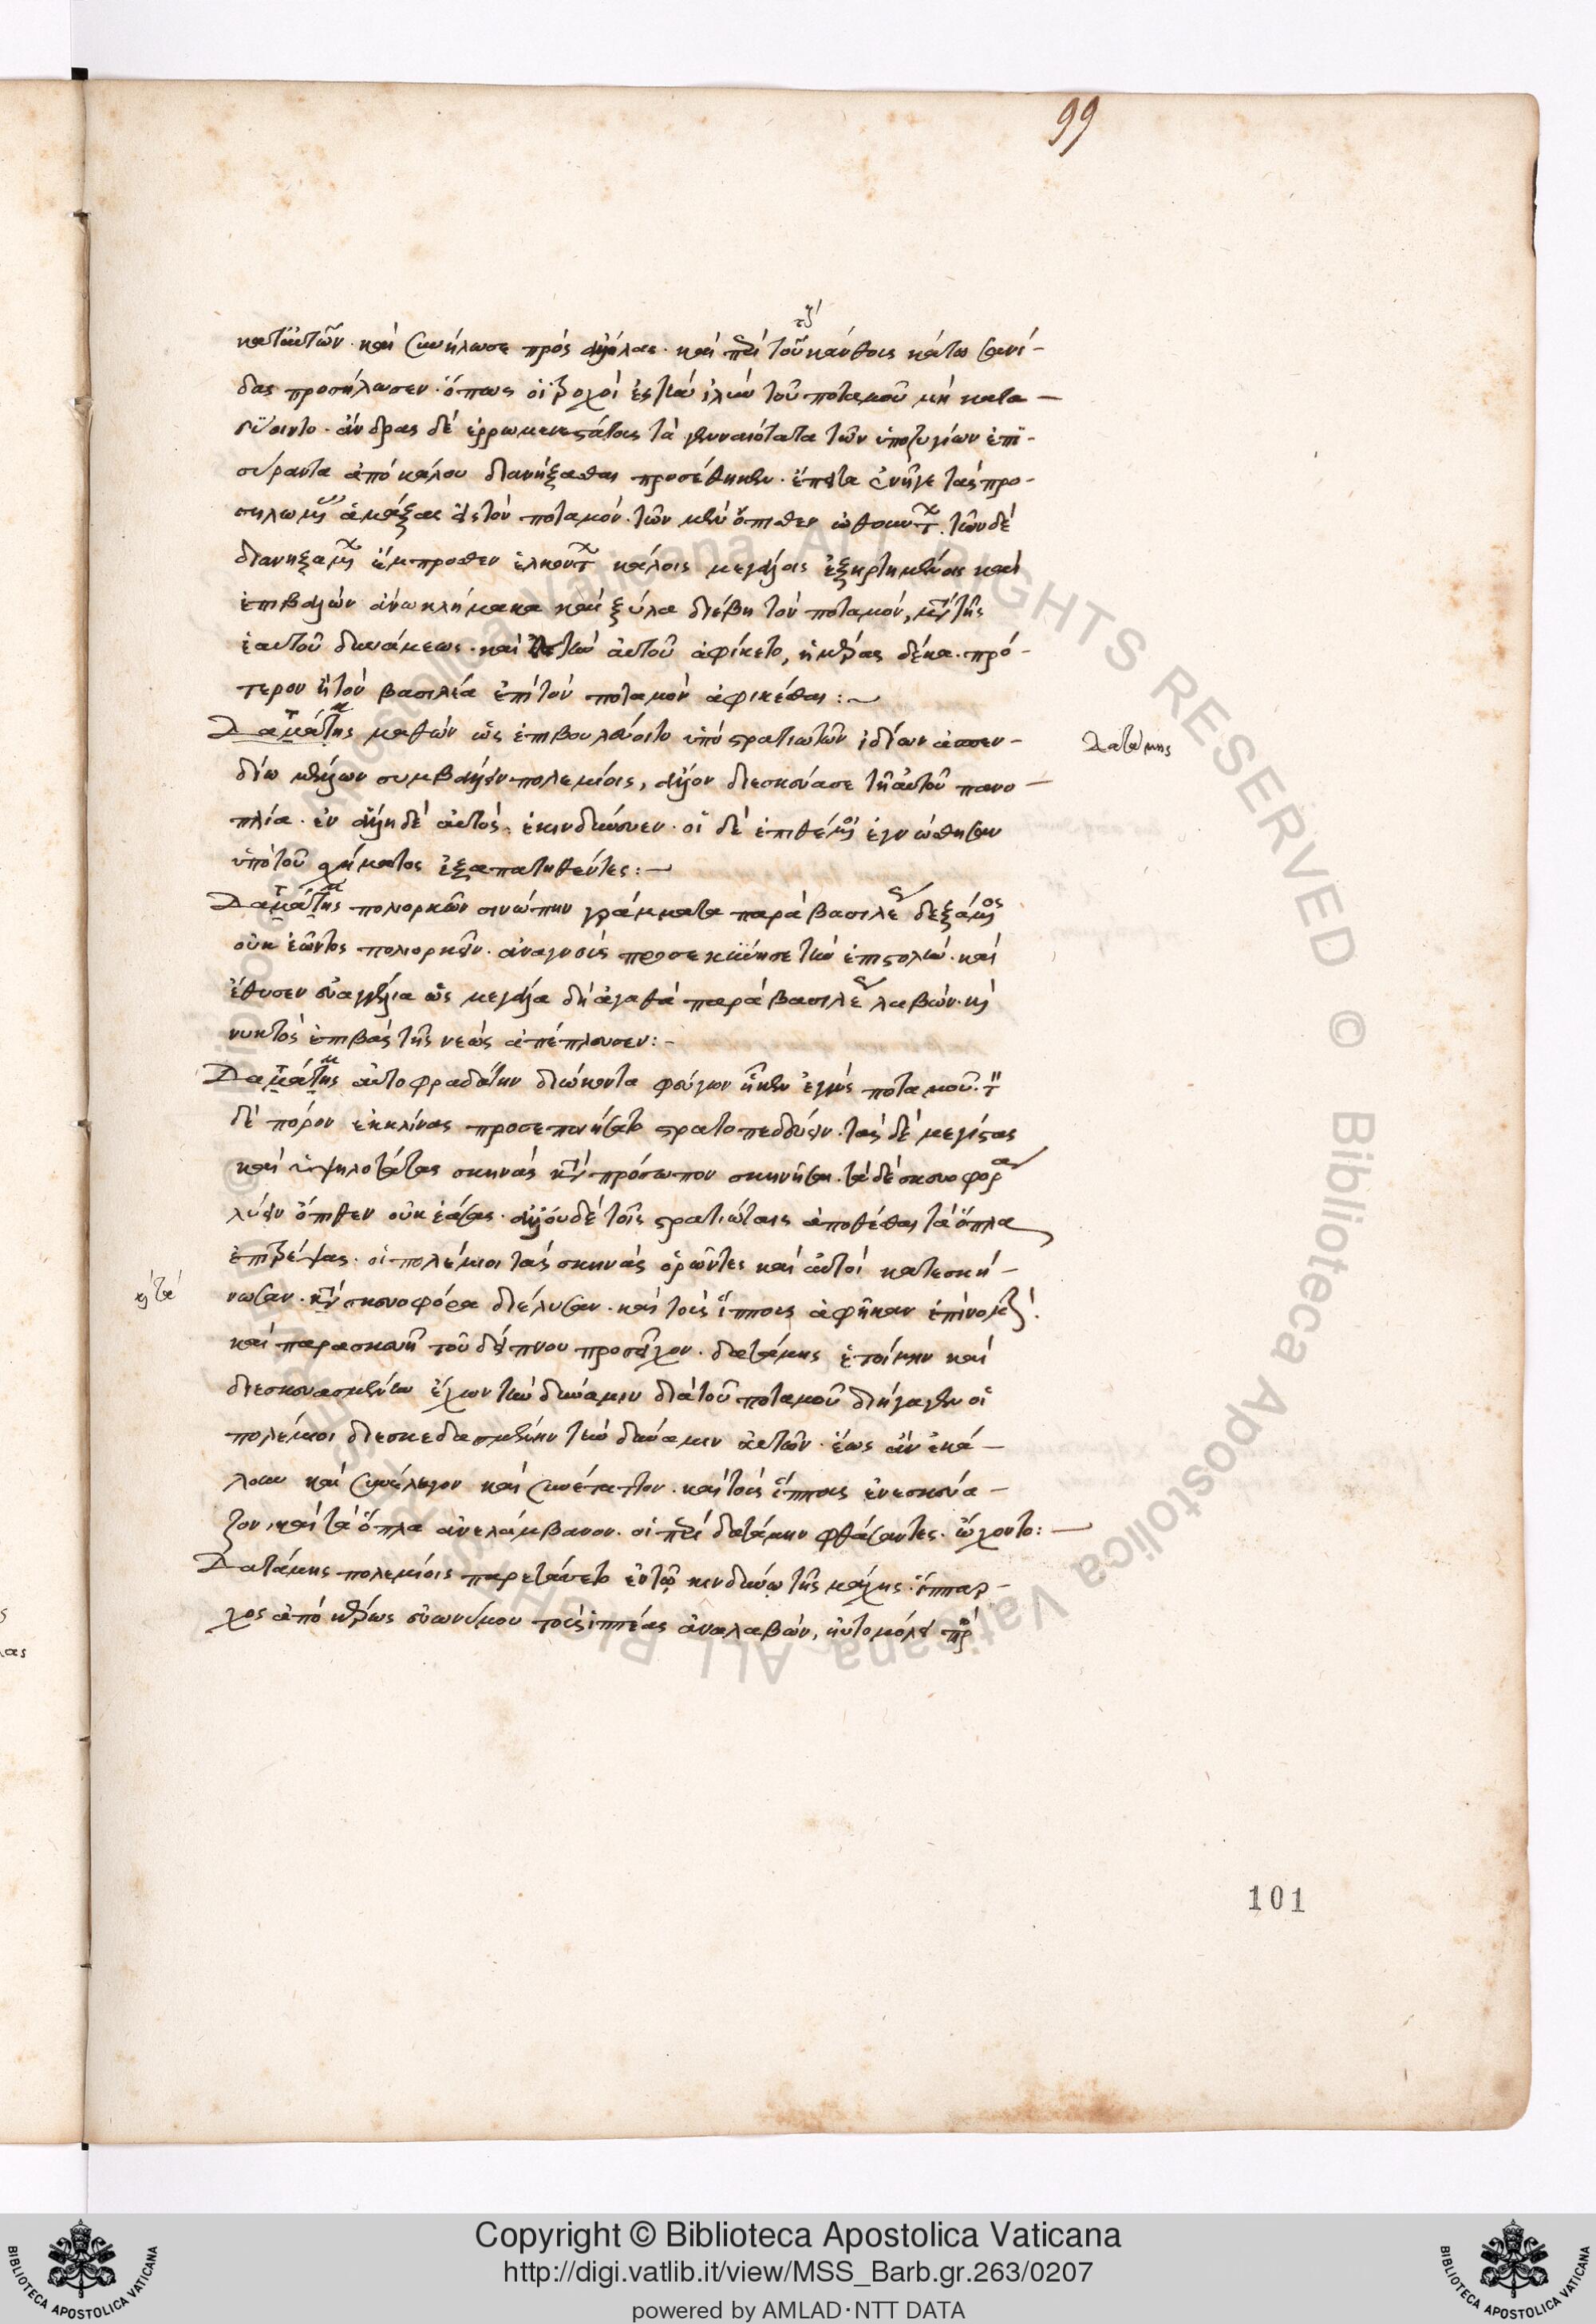 99
κατ' αὐτῶν. καὶ συνήλωσε πρὸς ἀλλήλας. καὶ περὶ τοὺς κάνθους κάτω σανί-
δας προσήλωσεν. ὅπως οἱ τροχοὶ ἐς τὴν ἰλὺν τοῦ ποταμοῦ μὴ κατα-
δύοιντο. ἄνδρας δὲ ἐρρωμενεστάτους τὰ γενναιότατα τῶν ὑποζυγίων ἐπι-
σύραντα ἀπὸ κάλου διανήξασθαι προσέθηκεν. ἔπειτα ἐνῆγε τὰς προ-
σηλωμένας ἁμάξας εἰς τὸν ποταμόν. τῶν μὲν ὄπισθεν ὠθούντων. τῶν δὲ
διανηξαμένων ἔμπροσθεν ἑλκόντων κάλοις μεγάλοις ἐξηρτημένας καὶ
ἐπιβαλὼν ἄνω κλήματα καὶ ξύλα διέβη τὸν ποταμόν, μετὰ τῆς
ἑαυτοῦ δυνάμεως. καὶ τὴν αὐτοῦ ἀφίκετο, ἡμέρας δέκα. πρό-
τερον ἢ τὸν βασιλέα ἐπὶ τὸν ποταμὸν ἀφικέσθαι:~
Δαμάτης μαθὼν ὡς ἐπιβουλεύοιτο ὑπὸ στρατιωτῶν ἰδίων
Δατάμης
μέλλων συμβαλεῖν πολεμίοις, ἄλλον διεσκεύασε τῇ αὐτοῦ πανο-
πλίᾳ. ἐν ἄλλῃ δὲ αὐτὸς ἐκινδύνευεν. οἱ δὲ ἐπιθέμενοι ἐγνώσθησαν
ὑπὸ τοῦ σχήματος ἐξαπατηθέντες:~
Δαμάτης πολιορκῶν σινώπην γράμματα παρὰ βασιλέως δεξάμενος
οὐκ ἐῶντος πολιορκεῖν. ἀναγνοὺς προσεκύνησε τὴν ἐπιστολήν. καὶ
ἔθυσεν εὐαγγέλια ὡς μεγάλα δὴ ἀγαθὰ παρὰ βασιλέως λαβών. καὶ
νυκτὸς ἐπιβὰς τῆς νεὼς ἀπέπλευσεν:-
Δαμάτης αὐτοφραδάτην διώκοντα φεύγων ἧκεν ἐγγὺς ποταμοῦ. τὸν
δὲ πόρον ἐκκλίνας προσεποιήσατο στρατοπεδεύειν. τὰς δὲ μεγίστας
καὶ ὑψηλοτάτας σκηνὰς κατὰ πρόσωπον σκηνῆσαι. τὰ δὲ σκευοφόρα
λύειν ὄπισθεν οὐκ ἐάσας. ἀλλ' οὐδὲ τοῖς στρατιώταις ἀποθέσθαι τὰ ὅπλα
ἐπιτρέψας. οἱ πολέμιοι τὰς σκηνὰς ὁρῶντες καὶ αὐτοὶ κατεσκή-
καὶ τὰ
νωσαν. κατὰ σκευοφόρα διέλυσαν. καὶ τοὺς ἵππους ἀφῆκαν ἐπὶ νομάς.
καὶ παρασκευῇ τοῦ δείπνου προσεῖχον. δατάμης ἑτοίμην καὶ
διεσκευασμένην ἔχων τὴν δύναμιν διὰ τοῦ ποταμοῦ διήγαγεν οἱ
πολέμιοι διεσκεδασμένην τὴν δύναμιν αὐτῶν. ἕως ἀνεκά-
λουν καὶ συνέλεγον καὶ συνέταττον. καὶ τοὺς ἵππους ἐνεσκεύα-
ζον, καὶ τὰ ὅπλα ἀνελάμβανον. οἱ περὶ δατάμην φθάσαντες. ᾤχοντο:~
Δατάμης πολεμίοις παρετάττετο ἐν τῷ κινδύνῳ τῆς μάχης. ἵππαρ-
χος ἀπὸ κέρως εὐωνύμου τοὺς ἱππέας ἀναλαβὼν, ηὐτομόλει πρὸς
101
Copyright © Biblioteca Apostolica Vaticana
http://digi.vatlib.it/view/MSS_Barb.gr.263/0207
powered by AMLAD·NTT DATA